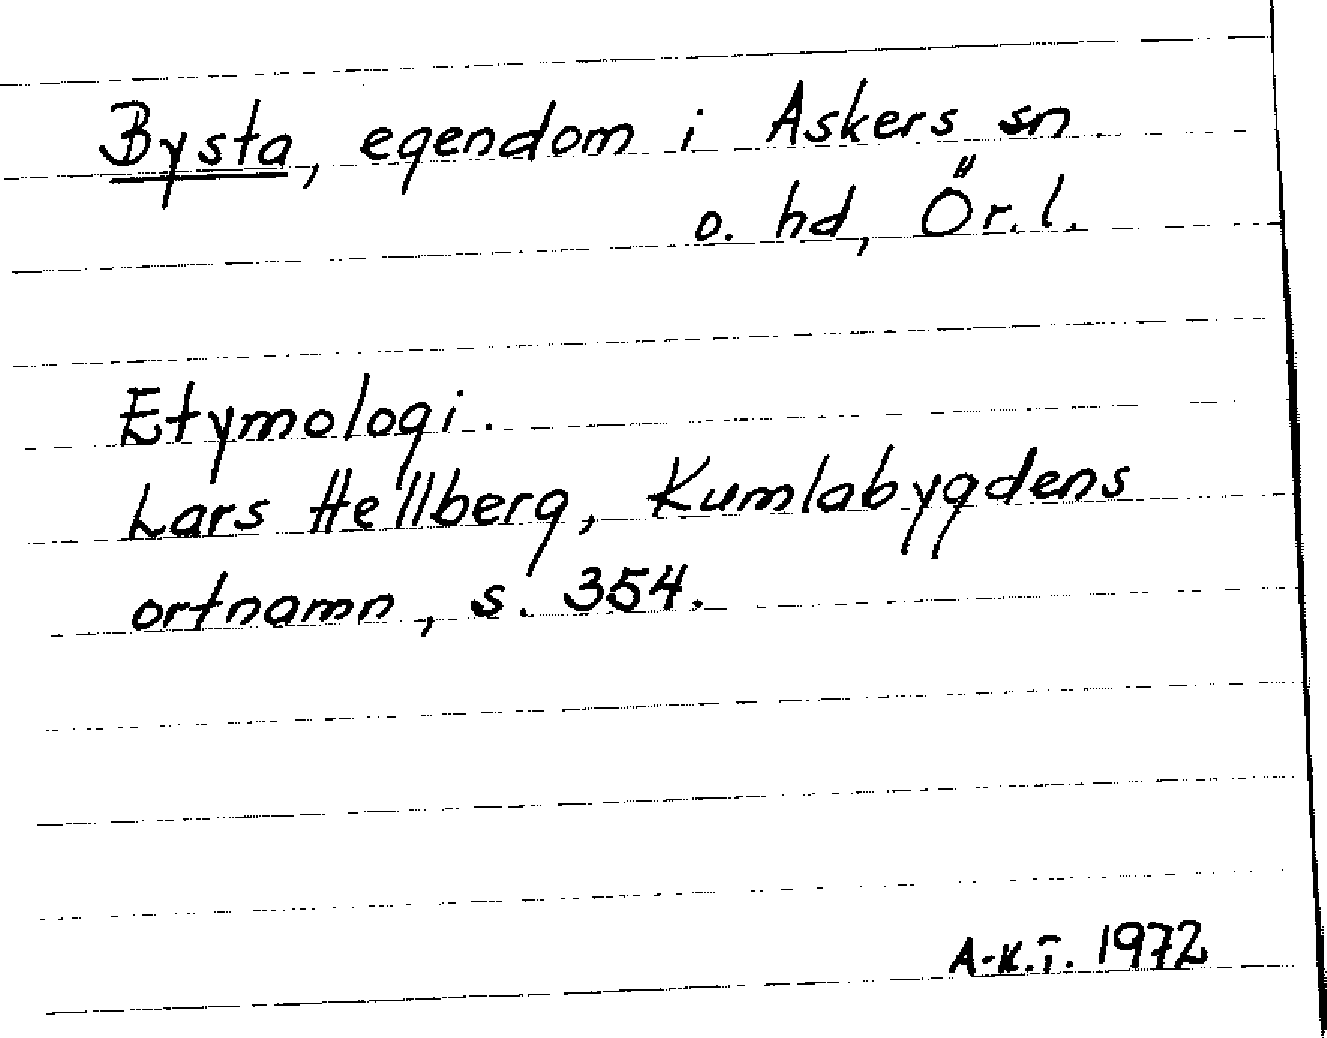 Bysta, egendom i Askers sn
o. hd, Ör. l.
Etymologi.
Lars Hellberg, Kumlabygdens
ortnamn, s. 354.
A-K.T. 1972